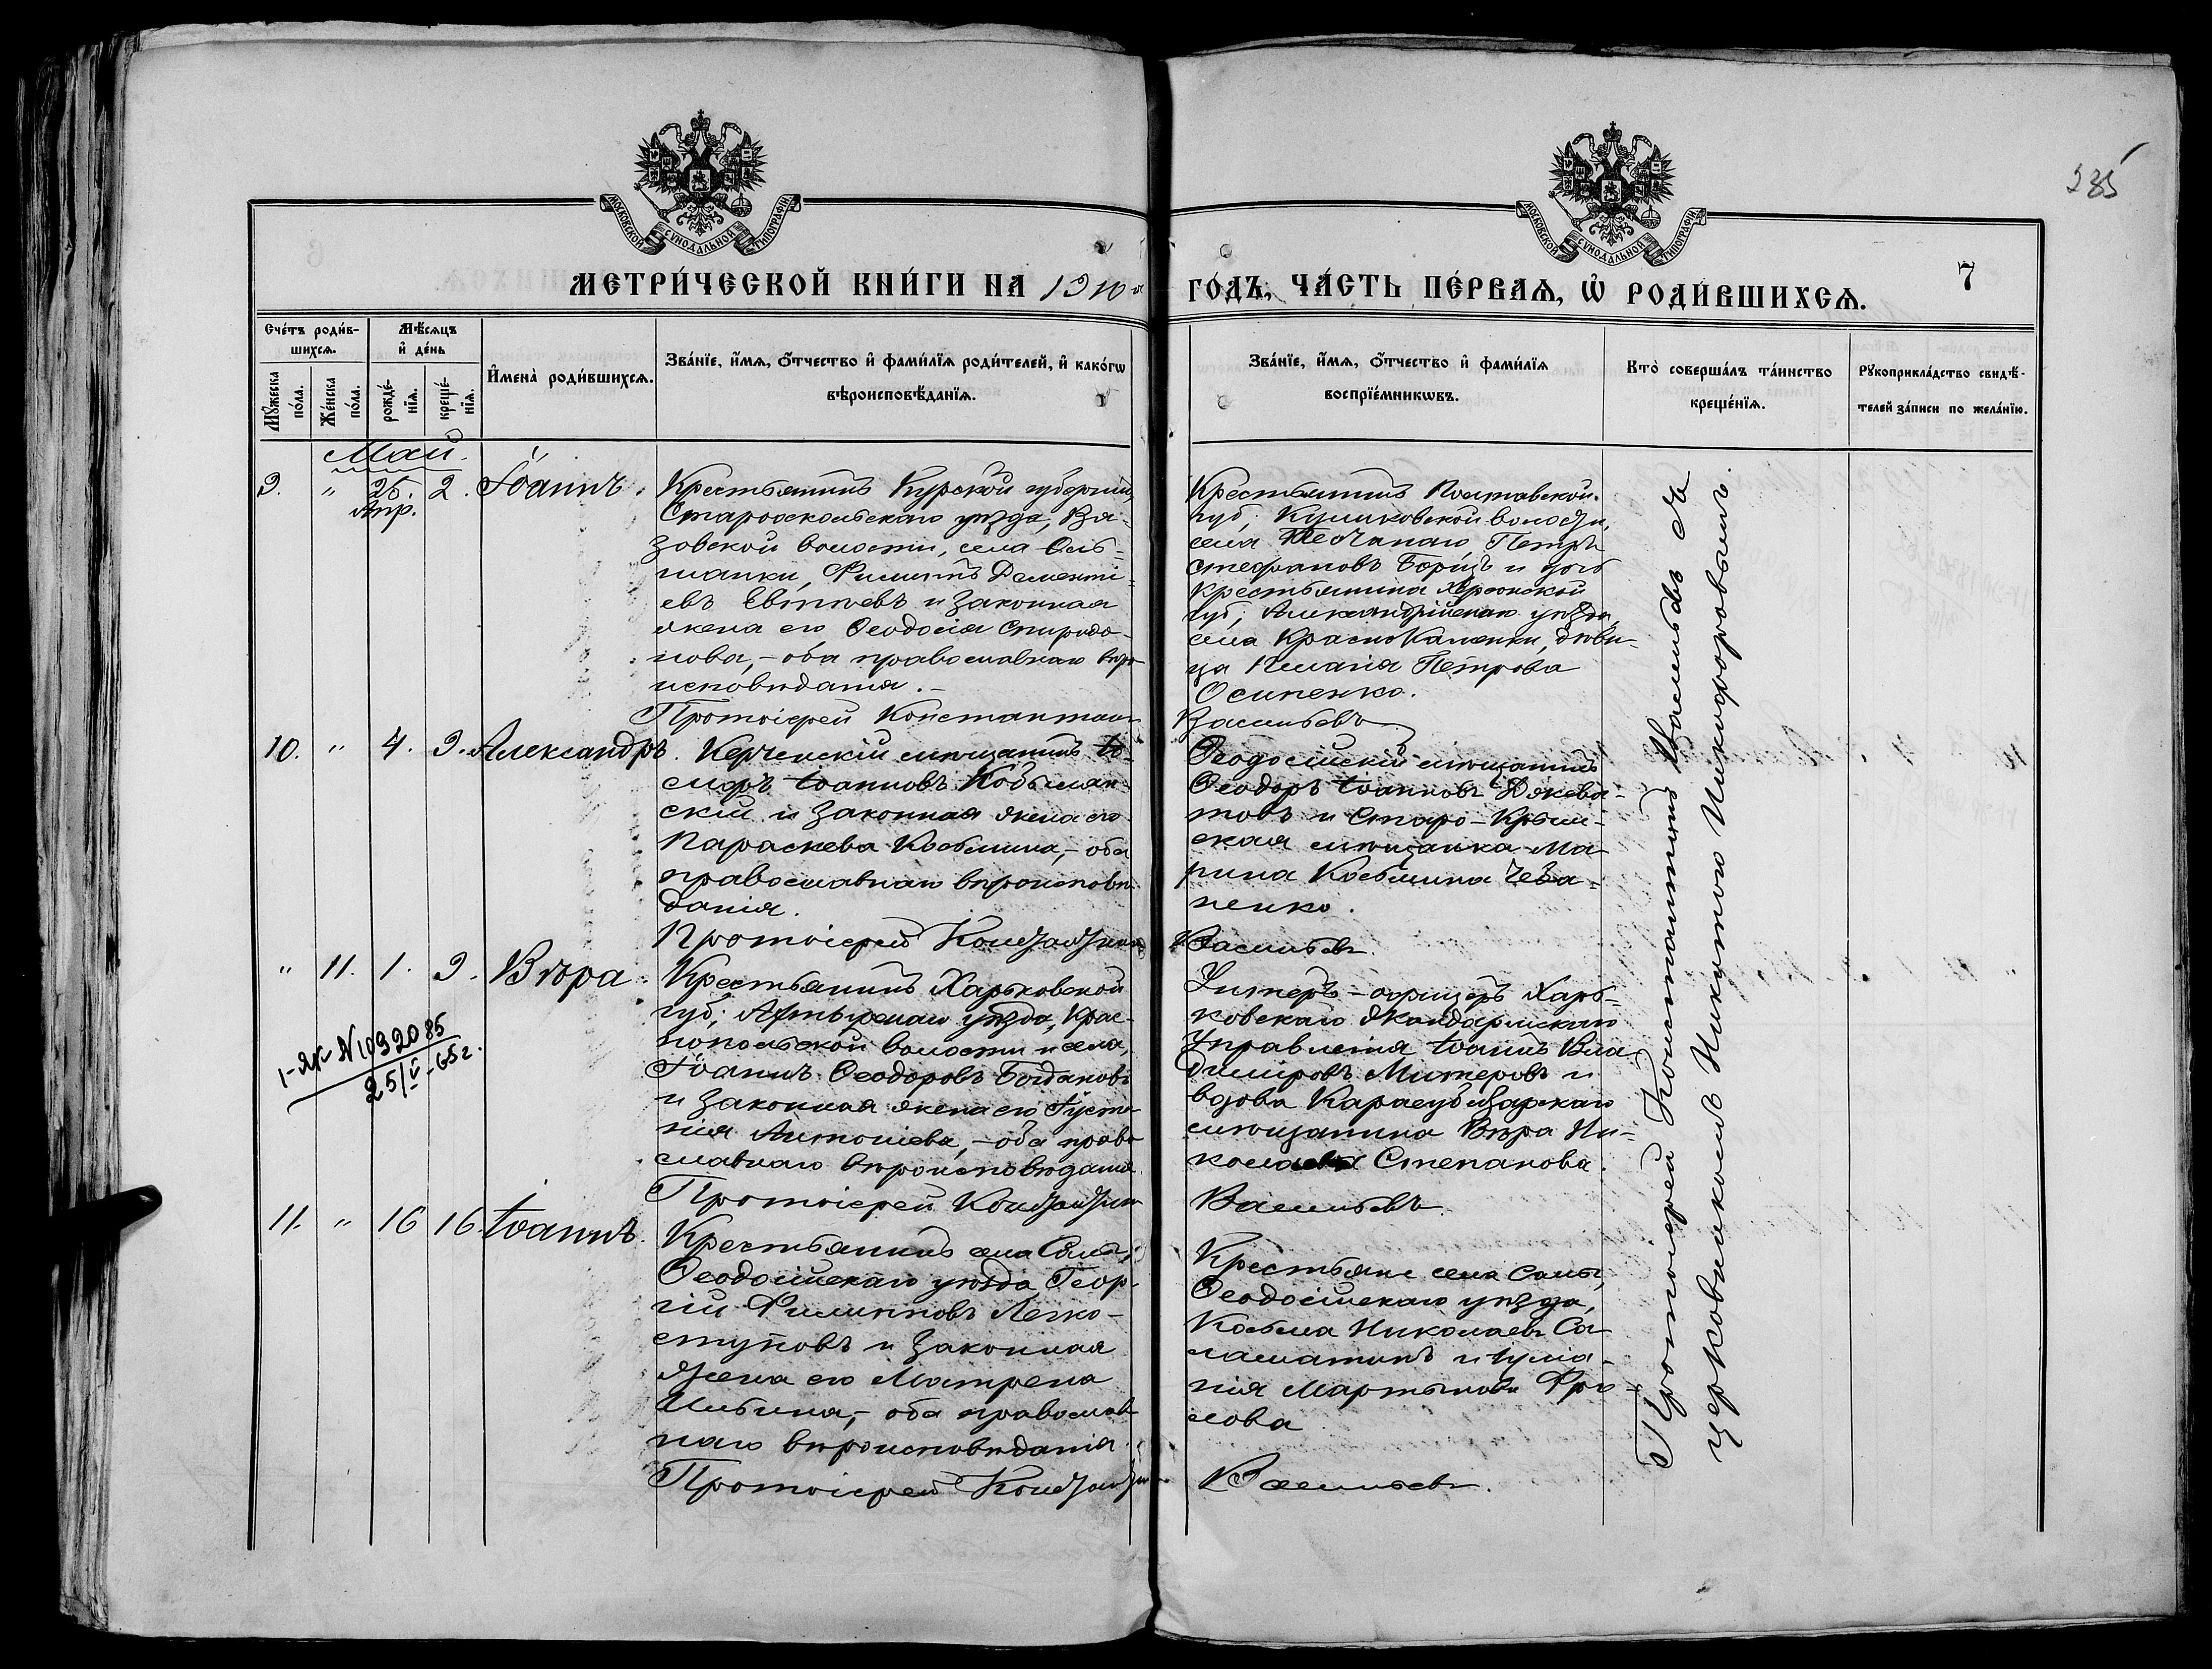 235
МОСКОВСКОЙ СѴНОДАЛЬНОЙ ТИПОГРАФІИ
МОСКОВСКОЙ СѴНОДАЛЬНОЙ ТИПОГРАФІИ
МЕТРИ́ЧЕСКОЙ КНИ́ГИ НА 1910
ГО́ДЪ, ЧА́СТЬ ПЕ́РВАѦ, Ѡ҆ РОДИ́ВШИХСѦ.
7
Сче́тъ роди́в-
шихсѧ.
Мꙋ́жеска
по́ла.
Же́нска
по́ла.
Мѣ́сѧцъ
и҆ де́нь
рожде́-
нїѧ.
креще́-
нїѧ.
И҆мена̀ роди́вшихсѧ.
Зва́нїе, и҆́мѧ, ѻ҆́тчество и҆ фами́лїѧ роди́телей, и҆ како́гѡ
вѣроисповѣ́данїѧ.
Зва́нїе, и҆́мѧ, ѻ҆́тчество и҆ фами́лїѧ
воспрїе́мникѡвъ.
Кто̀ соверша́лъ та́инство
креще́нїѧ.
Рꙋкоприкла́дство свидѣ́-
телей за́писи по жела́нїю.
Май.
9. " 25. Апр. 2. Іоаннъ.
Крестьянинъ Курской губерніи,
Старооскольскаго уѣзда, Вя-
зовской волости, села Оль-
шанки, Филиппъ Дементі-
евъ Евтѣевъ и законная
жена его Ѳеодосія Спиридо-
нова, - оба православнаго вѣро-
исповѣданія. -
Протоіерей Константинъ
Крестьянинъ Полтавской
губ., Куликовской волости,
села Петръ
Стефановъ и дочь
крестьянина Херсонской
губ., Александрійскаго уѣзда,
села Красно Каменки, дѣви-
ца Пелагія Петрова
Осипенко.
Васильевъ
10. " 4. 9. Александръ.
Керченскій мѣщанинъ Іо-
сифъ Іоанновъ Кобылян-
скій и законная жена его
Параскева Косьмина, - оба
православнаго вѣроисповѣ-
данія.
Протоіерей Константинъ
Ѳеодосійскій мѣщанинъ
Ѳеодоръ Іоанновъ
и Старо-Крым-
ская мѣщанка Ма-
рина Косьмина
ненко.
Васильевъ.
" 11. 1. 9. Вѣра.
Крестьянинъ Харьковской
губ., Ахтырскаго уѣзда, Крас-
нопольской волости и села,
Іоаннъ Ѳеодоровъ Богдановъ
и законная жена его Іусти-
нія Антоніева, - оба право-
славнаго вѣроисповѣданія.
Протоіерей Константинъ
Унтеръ-офицеръ Харь-
ковскаго Жандармскаго
Управленія Іоаннъ Вла-
димировъ Митеровъ и
вдова Карасубазарскаго
мѣщанина Вѣра Ни-
колаева Степанова.
Васильевъ
1-ЯК №1092085
25/V-65г.
11. " 16 16. Іоаннъ.
Крестьянинъ села Салы,
Ѳеодосійскаго уѣзда, Геор-
гій Филипповъ Легко-
ступовъ и законная
жена его Матрена
Ильина, - оба православ-
наго вѣроисповѣданія.
Протоіерей Константинъ
Крестьяне села Салы,
Ѳеодосійскаго уѣзда,
Косьма Николаевъ Са-
ламатинъ и Іулiа-
нія Мартынова Фро-
лова
Васильевъ.
Протоіерей Константинъ Васильевъ съ
церковникомъ Никитою Никифоровымъ.